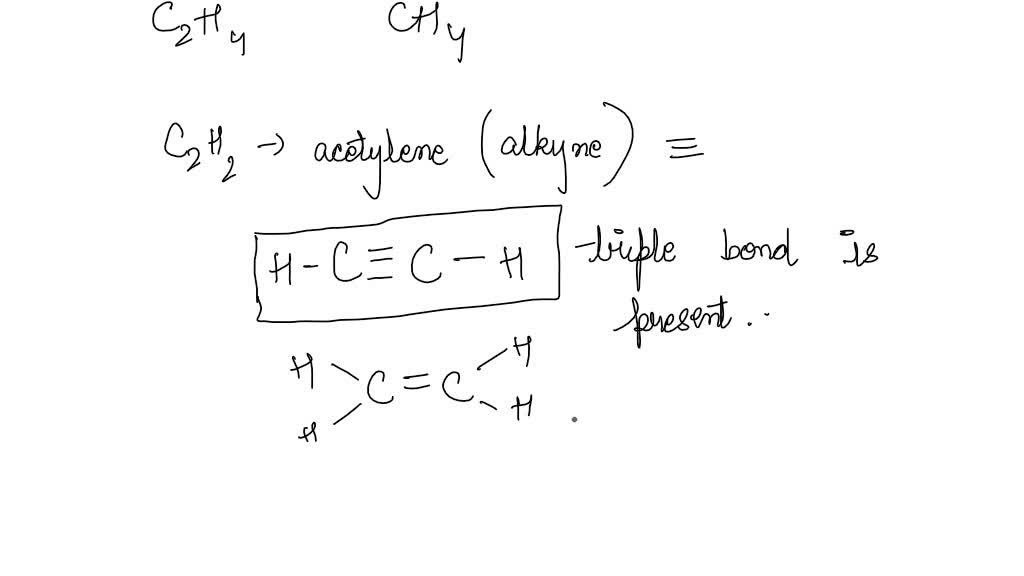 C₂H₄ CH₄
C₂H₂ → acetylene (alkyne) ≡
H-C≡C-H triple bond is
present..
H H
C=C
H H